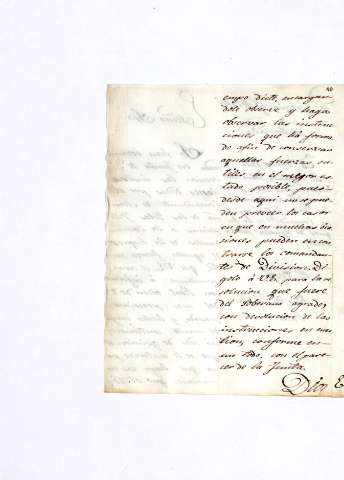 40
empo dicte, encargan
dole observe y haga
observar las instruc
ciones que ha forma
do afin de conservar
aquellas fuerzas su
tiles en el mejor es
tado posible, pues
desde aqui no se pue
den preveer los casos
en que en muchas oca
siones pueden encon
trarse los comandan
tes de Division. Di
golo á V.E. para la re
solucion que fuere
del soberano agrado,
con devolucion de las
instrucciones en cues
tion, conforme en
un todo, con el pare
cer de la Junta.
Dios